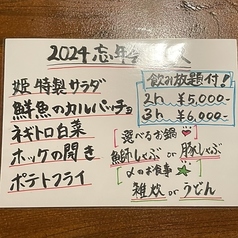 2024 忘年
飲み放題付!
2h ¥5,000-
3h ¥6,000-
姫特製サラダ
鮮魚のカルパッチョ
ネギトロ白菜
ホッケの開き
ポテトフライ
選べるお鍋
鰤しゃぶ or 豚しゃぶ
〆のお食事
雑炊 or うどん